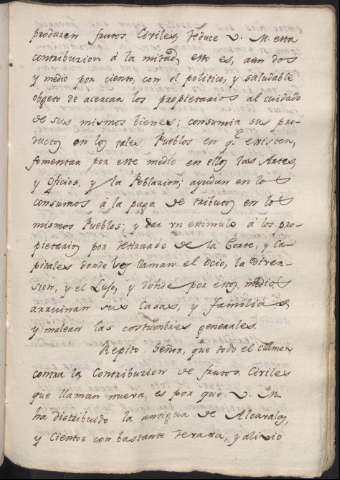 producen frutos Civiles, reduce V. M. esta
contribucion á la mitad, esto es, á un dos
y medio por ciento, con el politico, y saludable
objeto de acercar los propietarios al cuidado
de sus mismos bienes; consumir sus pro-
ductos en los tales Pueblos en q.e existen,
fomentar por este medio en ellos las Artes,
y Oficios, y la Poblacion, ayudar en los
consumos á la paga de tributos en los
mismos Pueblos; y dar un estimulo á los pro-
pietarios por retirarse de la Corte, y Ca-
pitales donde los llaman el ocio, la diver-
sion, y el Luxo, y donde por estos medios
arruinan sus Casas, y familias,
y malean las costumbres generales.
Repito Señor, que todo el clamor
contra la Contribucion de frutos Civiles
que llaman nueva, es por que V. M.
ha distribuido la antigua de Alcavalas,
y Cientos con bastante y alivio